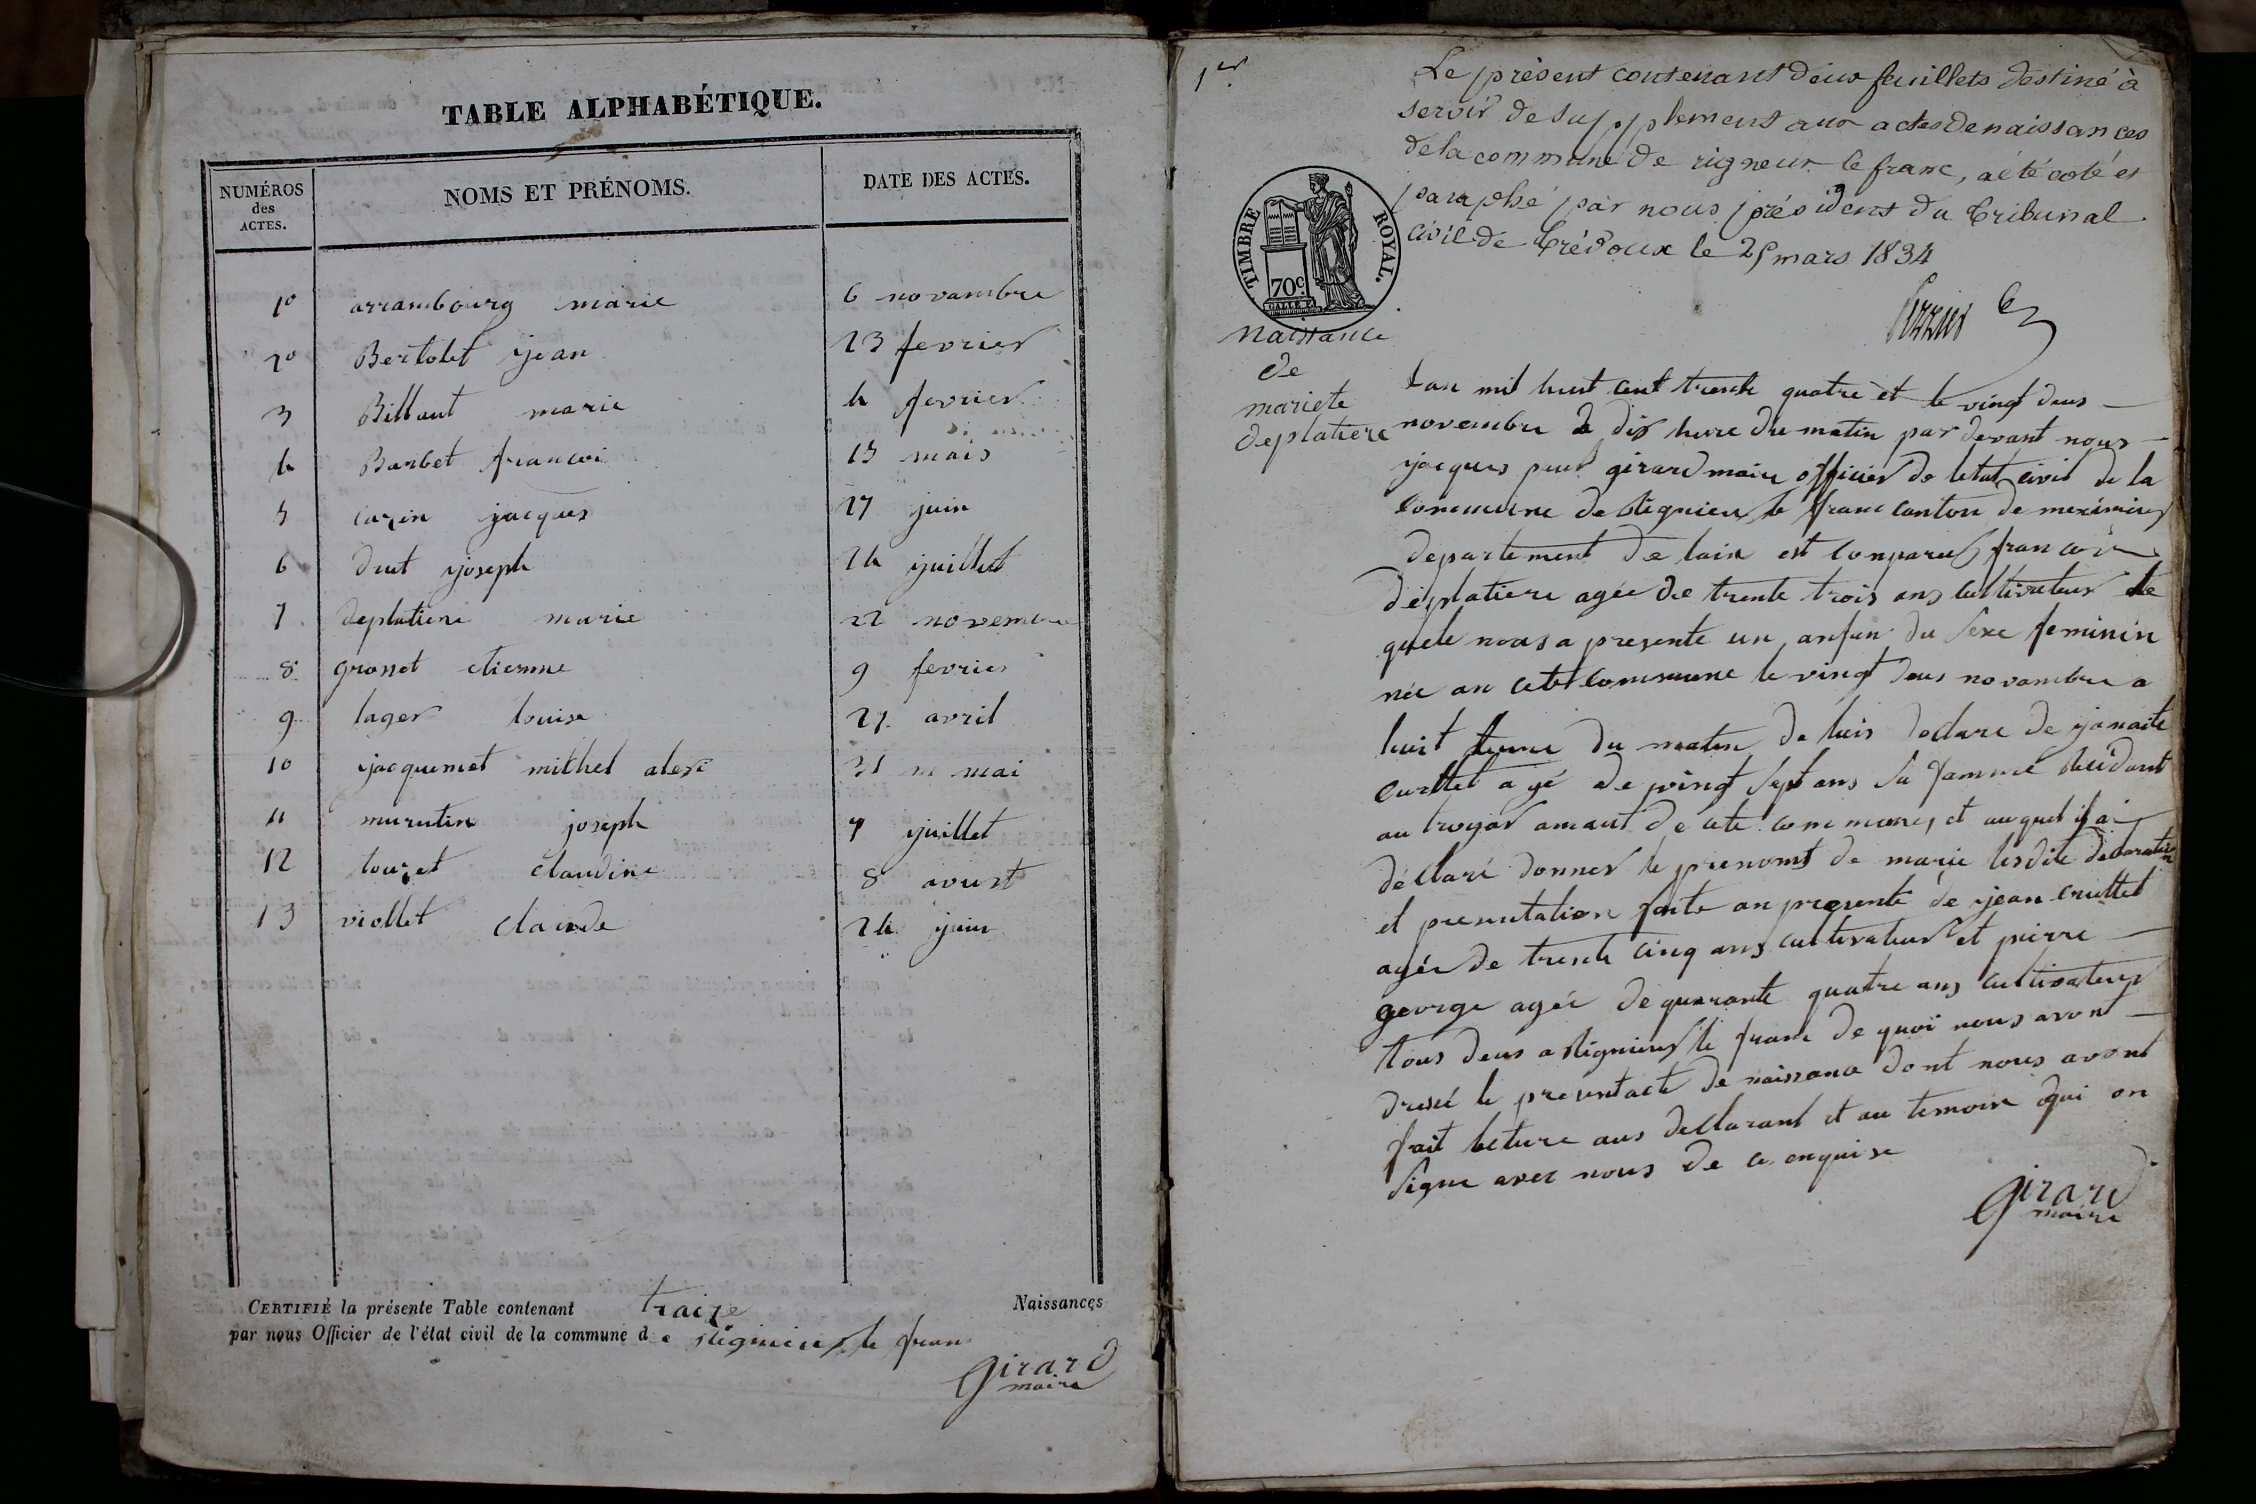 TABLE ALPHABÉTIQUE.
NUMÉROS des ACTES. NOMS ET PRÉNOMS. DATE DES ACTES.
1º arrambourg marie 6 novambre
2º Bertolet jean 23 fevrier
3 Billaut marie 4 fevrier
4 Barbet francoi 13 mars
5 cazin jacques 27 juin
6 drut joseph 24 juillet
7 deplatiere marie 22 novembre
8 grosset etienne 9 fevrier
9 lager louise 27 avril
10 jacquemet mithel alexi 31 m mai
11 murutin joseph 7 juillet
12 touzet claudine 8 avust
13 viollet claude 24 juin
CERTIFIÉ la présente Table contenant traize Naissances
par nous Officier de l'état civil de la commune de Rignieux le fran
Girard
maire
1er
Le présent contenant deux feuillets destiné à
servir de supplement aux actes de naissances
de la commune de rigneux le franc, a été coté et
paraphé par nous président du tribunal
civil de trévoux le 25 mars 1834
TIMBRE ROYAL.
70c.
naissance
de
mariete
deplatiere
lan mil huit cent trente quatre et le vingt deus
novembre a dix heure du matin par devant nous
jacques girard maire officier de letat civil de la
commune de Rignieu le franc canton de meximieux
departement de lain est comparus francois
deplatiere agée de trente trois ans cultivateur le
quele nous a presente un anfan du sexe feminin
née an cete commune le vingt deus novambre a
huit heure du matin de luis declare de janaite
curttet agé de vingt sept ans sa famme residant
au troyar amaus de cete commune, et auquel il a
déclaré donner le prenoms de marie lesdite declaration
et presentation faite an presente de jean cruttet
agée de trente cinq ans cultivateur et pierre
george agée de quarante quatre ans cultivateur
tous deus a Rignieux le franc de quoi nous avont
dressé le presentacte de naissance dont nous avont
fait lecture aus declarant et au temoin qui on
signe avec nous de ce enquise
Girard
maire